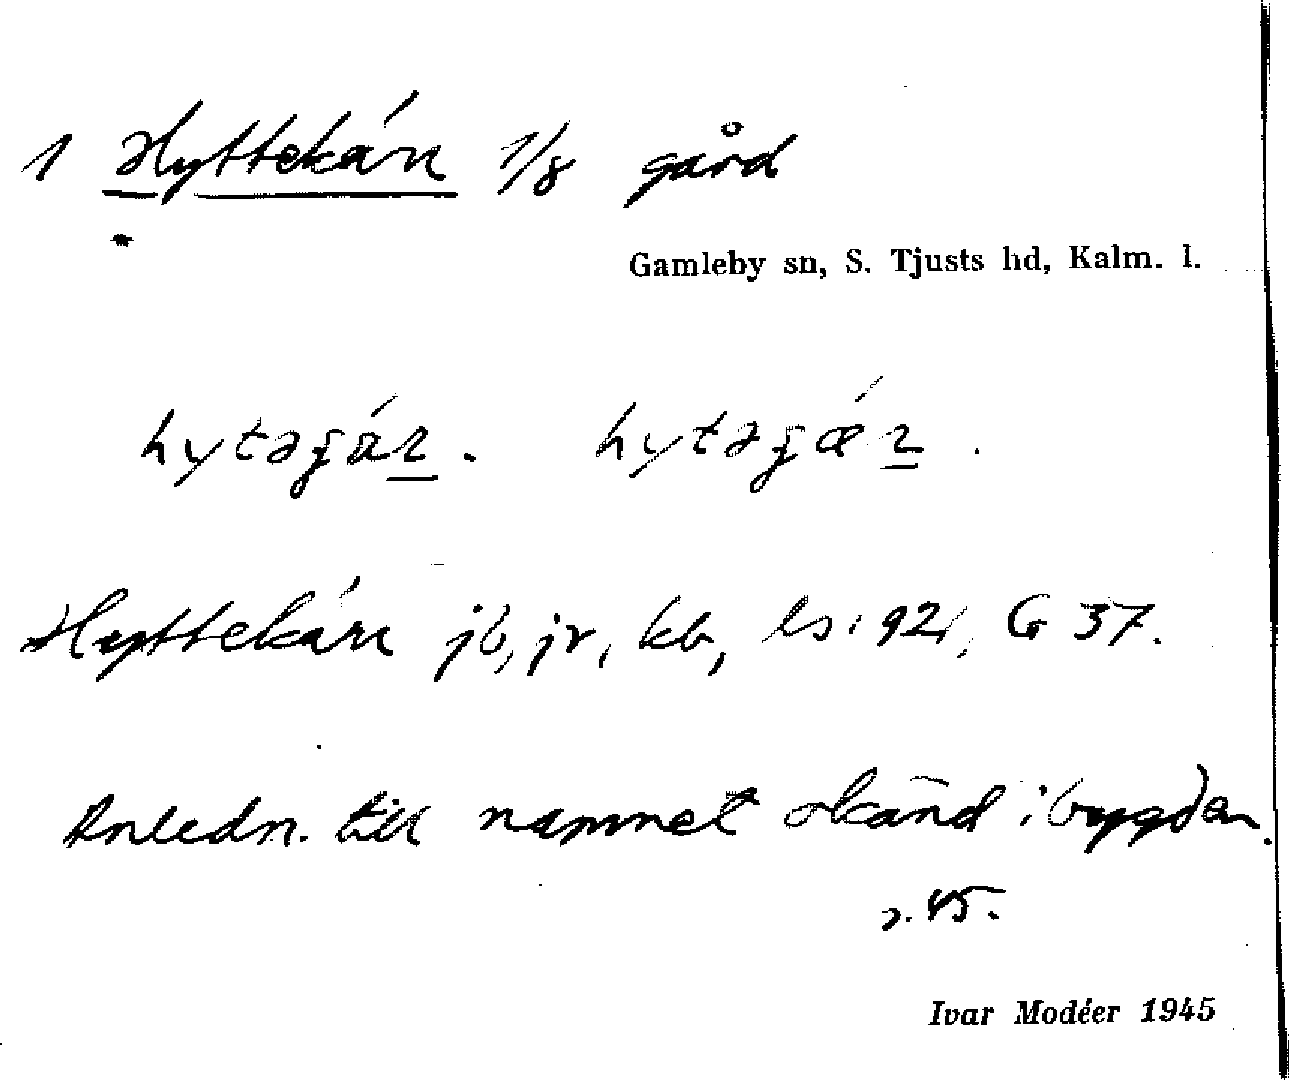 1 Hyttekärn 1/8 gård
Gamleby sn, S. Tjusts hd, Kalm. l.
hytə
Hyttekärn jb, jr, kb, ls: 92, G 37.
Anledn. till namnet okänd i bygden.
45.
Ivar Modéer 1945